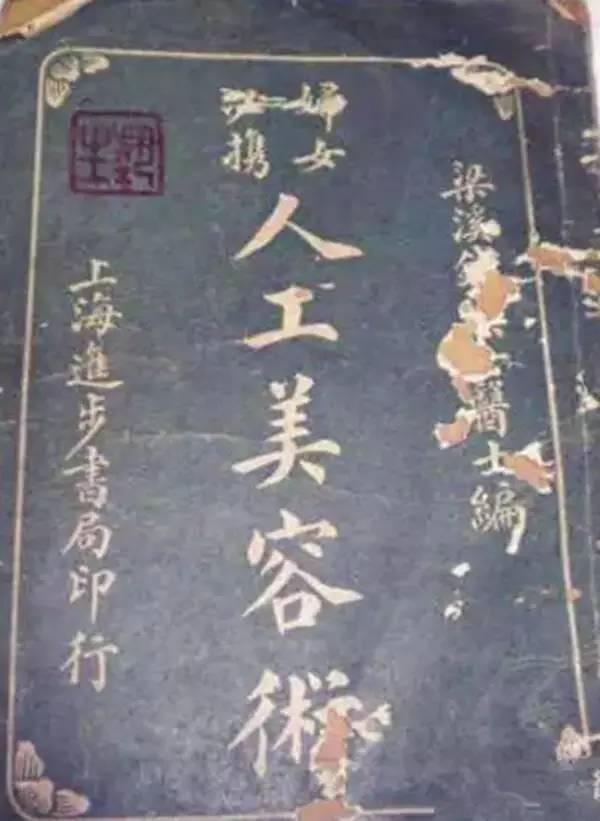 梁溪 醫士編
婦女
必攜
人工美容術
上海進步書局印行